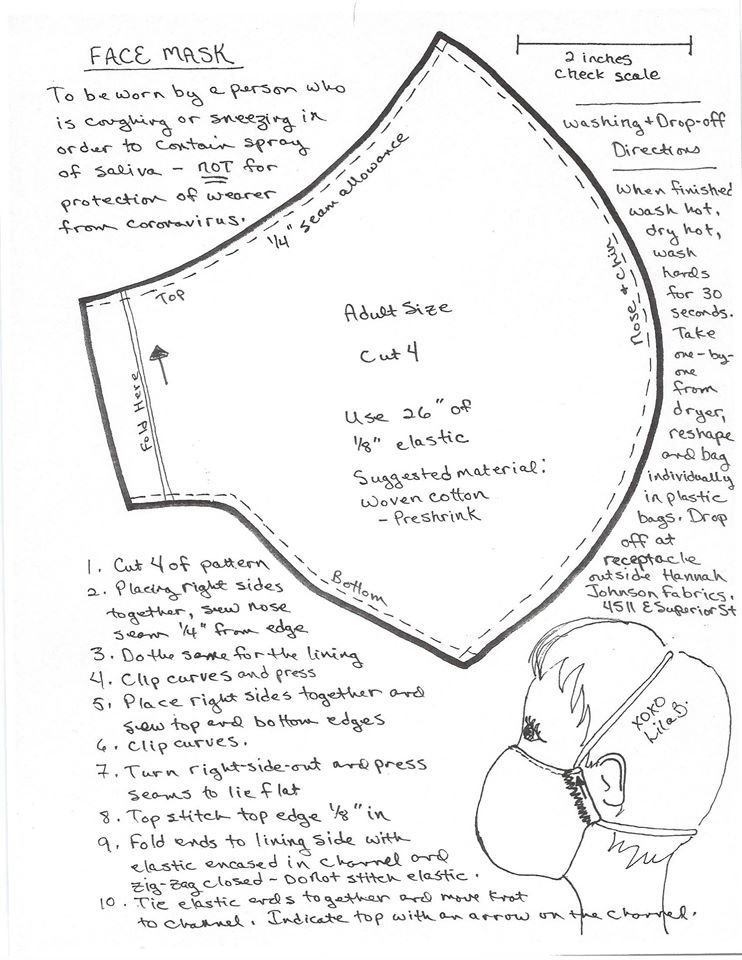 FACE MASK
To be worn by a person who
is coughing or sneezing in
order to contain spray
of saliva - NOT for
protection of wearer
from coronavirus.
2 inches
check scale
Washing + Drop-off
Directions
When finished
wash hot,
dry hot,
wash
hards
for 30
seconds.
Take
one-by-
one
from
dryer,
reshape
and bag
individually
in plastic
bags. Drop
off at
receptacle
outside Hannah
Johnson Fabrics.
4511 E Superior St
1/4" seam allowance
Top
Fold Here
Nose + Chin
Adult Size
Cut 4
Use 26" of
1/8" elastic
Suggested material:
Woven cotton
- Preshrink
Bottom
1. Cut 4 of pattern
2. Placing right sides
together, sew nose
seam 1/4" from edge
3. Do the same for the lining
4. Clip curves and press
5. Place right sides together and
sew top and bottom edges
6. Clip curves.
7. Turn right-side-out and press
seams to lie flat
8. Top stitch top edge 1/8" in
9. Fold ends to lining side with
elastic encased in channel and
zig-zag closed - Do not stitch elastic.
10. Tie elastic ends together and move knot
to channel. Indicate top with an arrow on the channel.
XOXO
Lila B.